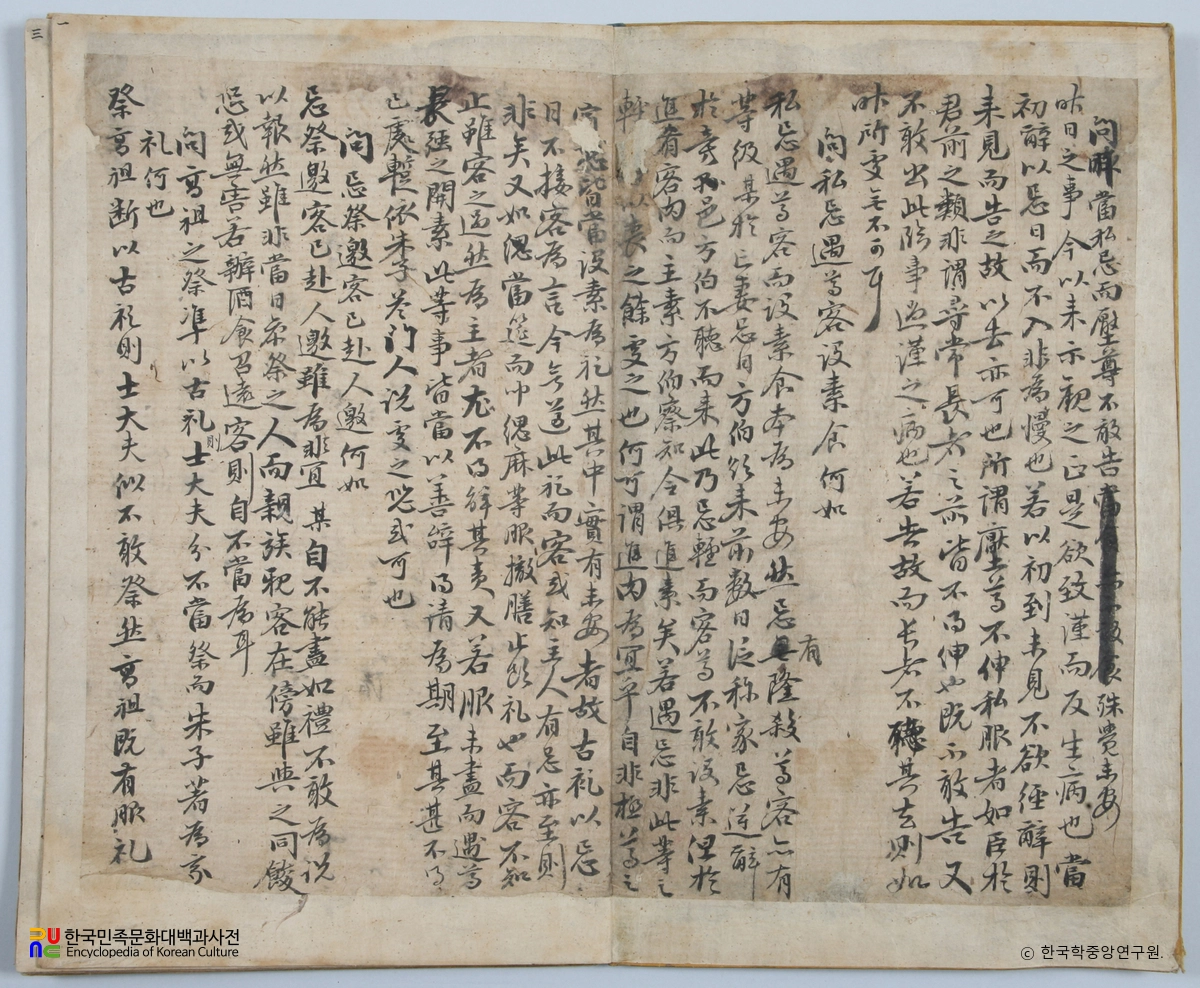 問昨當私忌而壓尊不敢告 殊覺未安
昨日之事今以来示觀之正是欲致謹而反生病也當
初辭以忌日而不入非為慢也若以初到未見不欲徑辭則
来見而告之故以去亦可也所謂壓尊不伸私服者如臣於
君前之類非謂尋常長者之前皆不得伸也既不敢告又
不敢出此除事過謹之病也若告故而長者不聽其去則如
昨所處無不可耳
問私忌遇尊客設素食何如
私忌遇尊客而設素食本為未安然忌有隆殺尊客亦有
等級某於亡妻忌日方伯欲来前數日泛称家忌送辭
於旁邑方伯不聽而来此乃忌輕而客尊不敢設素但於
進肴客肉而主素方伯察知令俱進素矣若遇忌非此等之
輕 喪之餘處之也何可謂進肉為宜乎自非極尊之
客 皆當設素為礼然其中實有未安者故古礼以忌
日不接客為言今無送此礼而客或知主人有忌亦至則
非矣又如緦當筵而中緦麻等服撤膳止非礼也而客不知
止雖客之過然為主者尤不得辭其責又若服未盡而遇尊
長强之開素此等事皆當以善辭得請為期至其甚不得
已處暫依朱子答门人說處之或可也
問忌祭邀客已赴人邀何如
忌祭邀客已赴人邀雖為非宜某自不能盡如禮不敢為說
以報然雖非當日祭之人而親族親客在傍雖與之同餕
恐或無害若辦酒食召遠客則自不當為耳
問高祖之祭準以古礼則士大夫分不當祭而朱子著為家
礼何也
祭高祖断以古礼則士大夫似不敢祭然高祖既有服礼
一
三
한국민족문화대백과사전
Encyclopedia of Korean Culture
ⓒ 한국학중앙연구원.